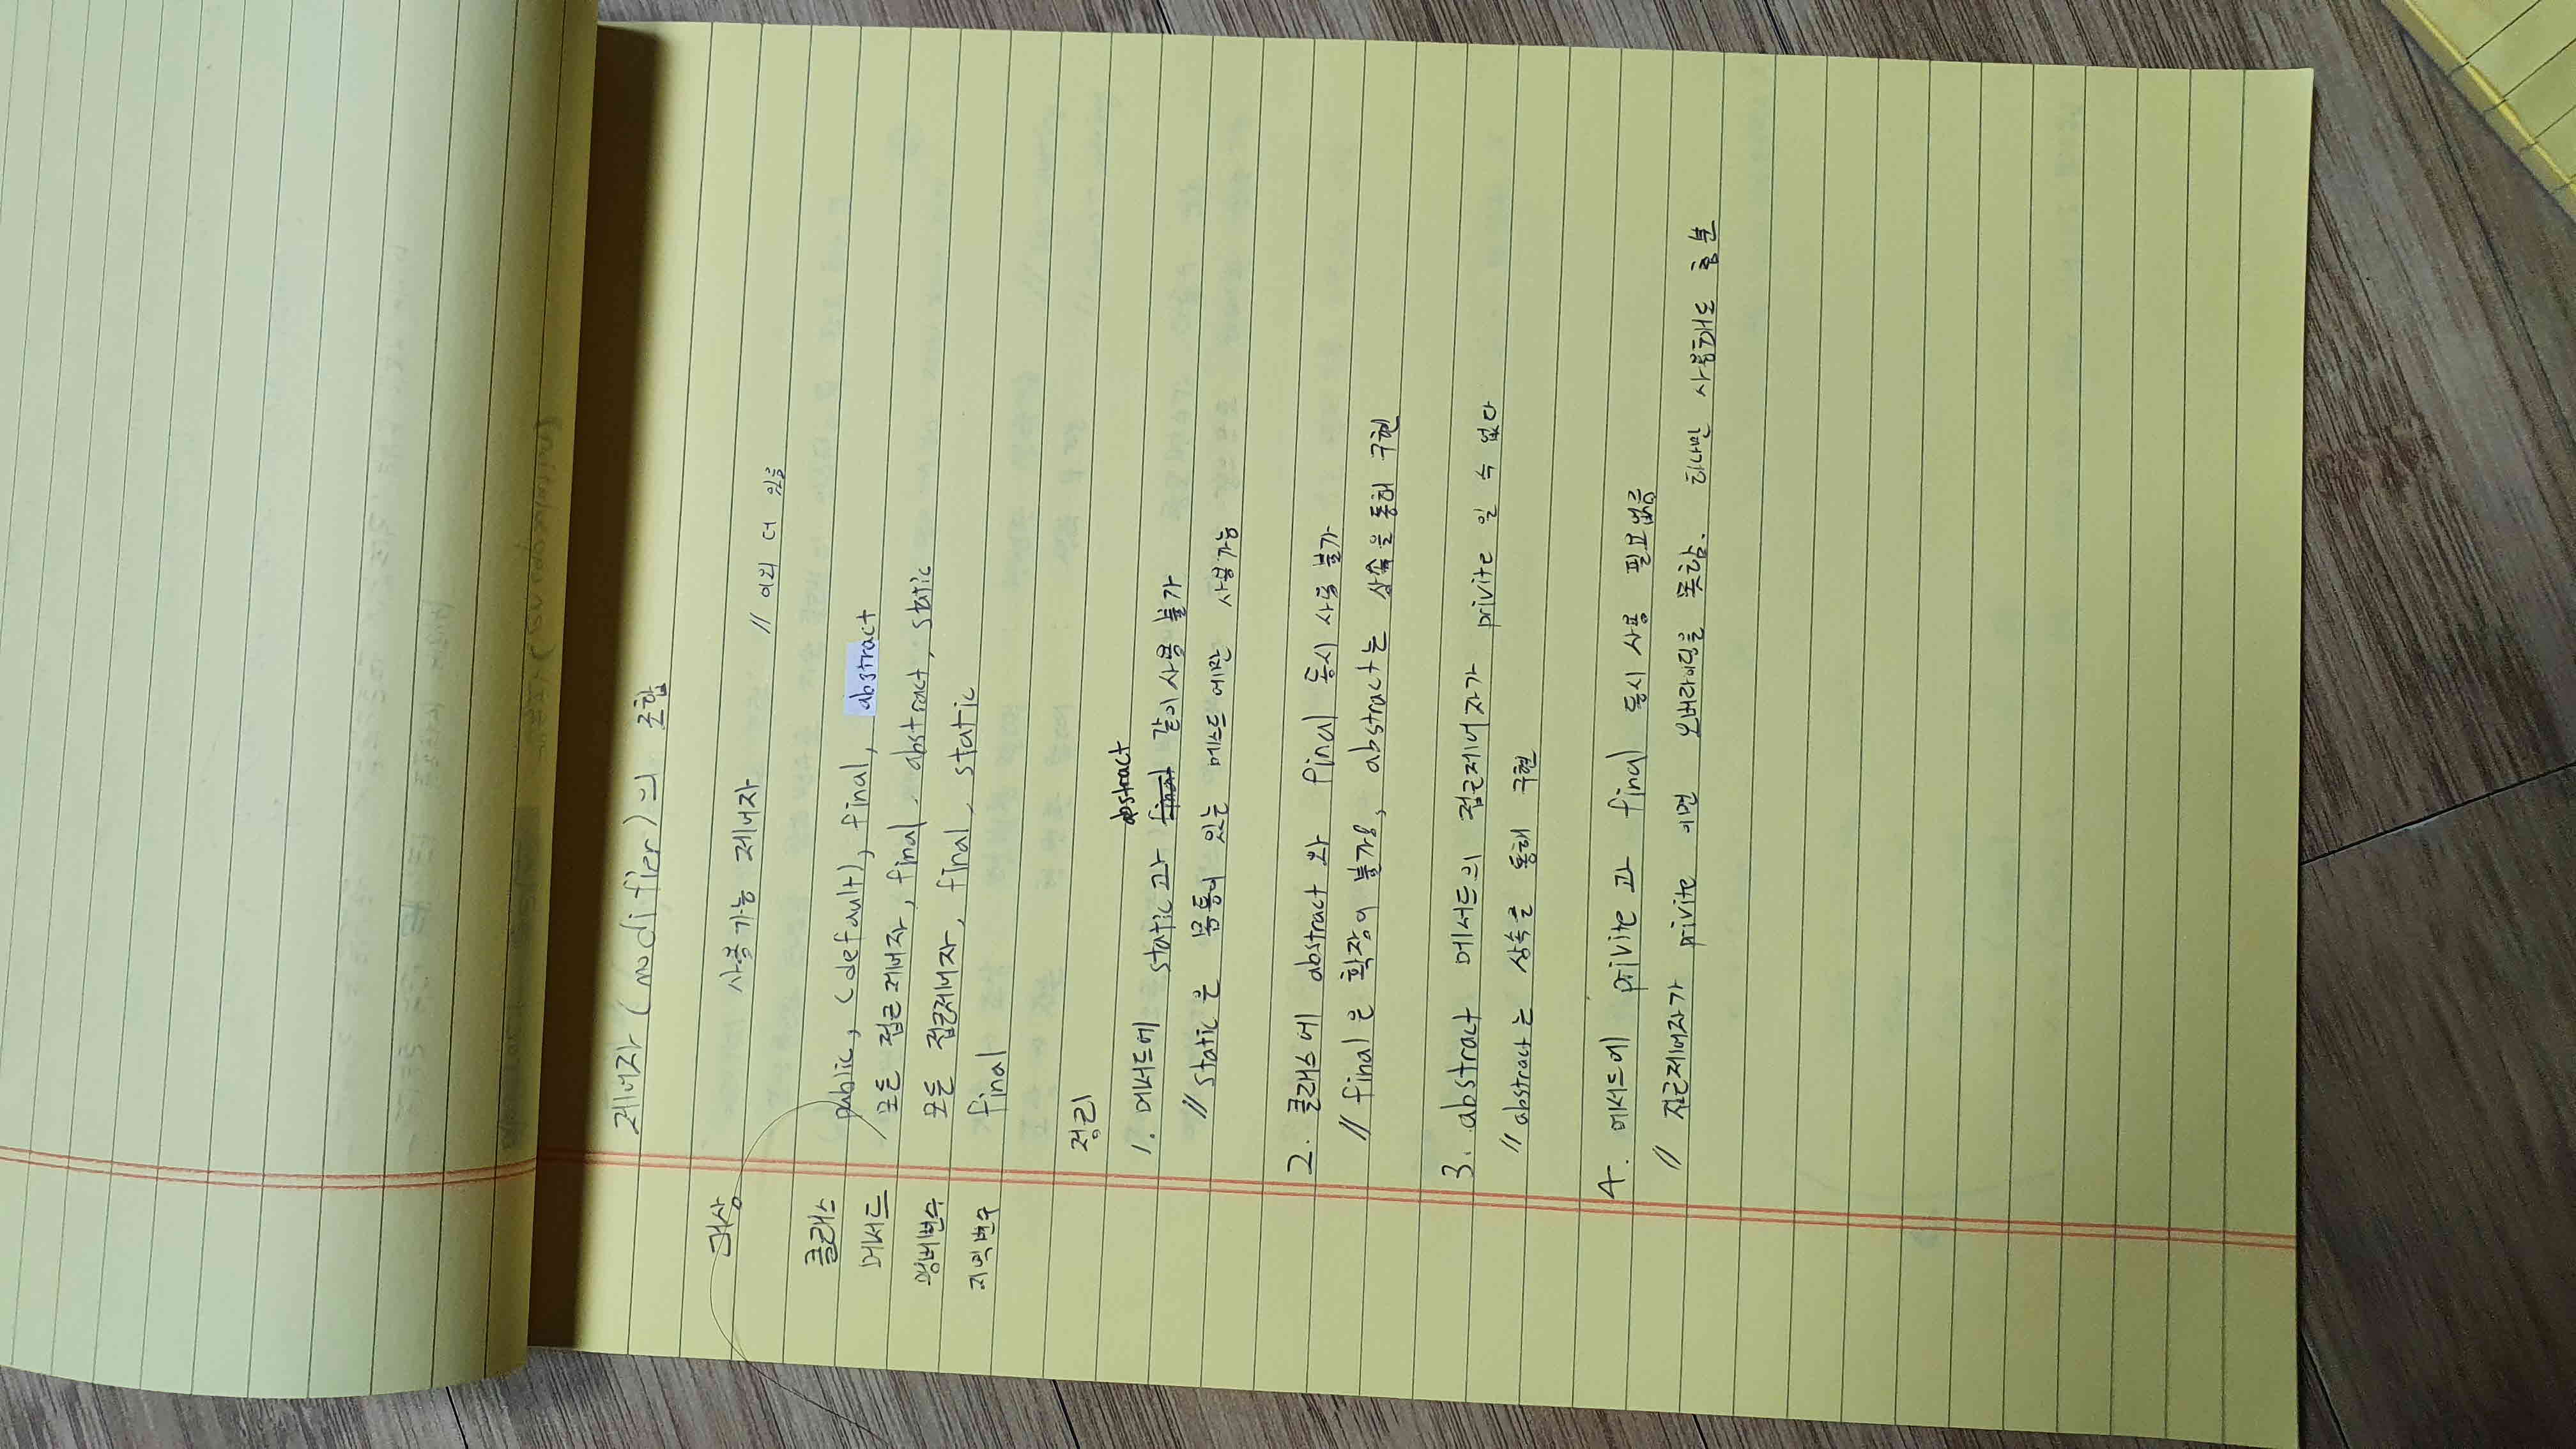 제어자(modifier)의 조합
대상 사용가능 제어자 // 이외 더 있음
클래스 public, (default), final, abstract
메서드 모든 접근 제어자, final, abstract, static
멤버변수 모든 접근제어자, final, static
지역변수 final
정리
abstract
1. 메서드에 static과 final 같이 사용 불가
// static은 몸통이 있는 메스드에만 사용가능
2. 클래스에 abstract와 final 동시 사용 불가
// final은 확장이 불가능, abstract는 상속을 통해 구현
3. abstract 메서드의 접근제어자가 privite 일 수 없다
// abstract는 상속을 통해 구현
4. 메서드에 privite과 final 동시 사용 필요없음
// 접근제어자가 privite 이면 오버라이딩을 못함. 하나만 사용해도 충분